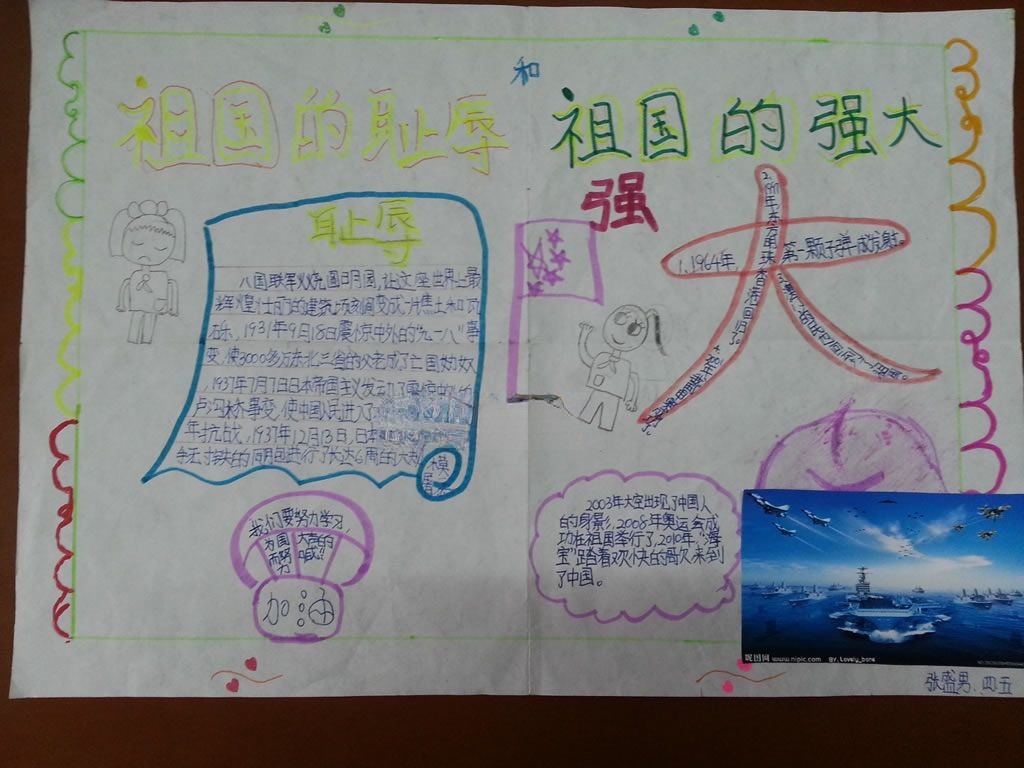 祖国的耻辱
和
祖国的强大
耻辱
八国联军火烧圆明园,让这座世界上最
辉煌壮丽的建筑顷刻间变成一片焦土和瓦
砾。1931年9月18日震惊中外的“九一八”事
变,使3000多万东北三省的父老成了亡国奴
,1937年7月7日日本帝国主义发动了震惊的
卢沟桥事变,使中国人民进入了
年抗战,1937年12月13日,日本
的同胞进行了长达6周的大规模
强
大
1.1964年,第一颗子弹成功发射。
2.1997年东方明珠香港回归了。
我们要努力学习,
为国
而努力
大声的
喊!!
加油
2003年太空出现了中国人
的身影,2008年奥运会成
功在祖国举行了,2010年“海
宝”踏着欢快的步伐来到
了中国。
昵图网 www.nipic.com BY: Lovely_bone
张盛男.四五